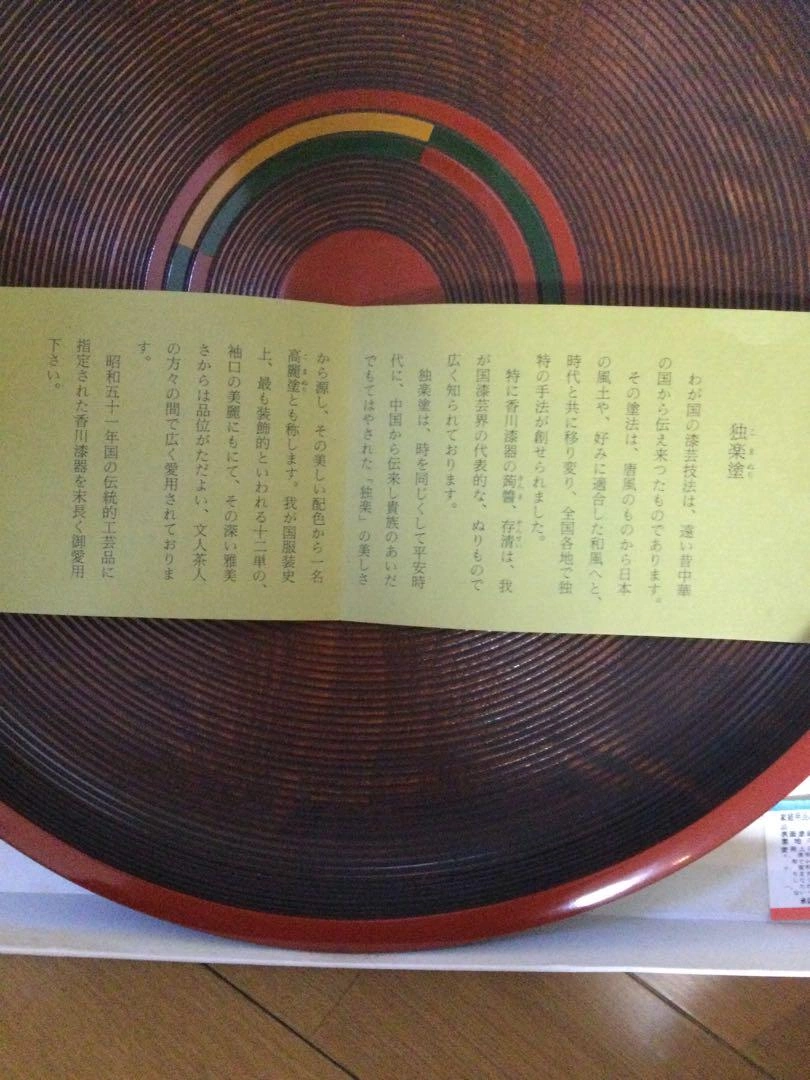 独楽塗
こまぬり
わが国の漆芸技法は、遠い昔中華
の国から伝え来つたものであります。
その塗法は、唐風のものから日本
の風土や、好みに適合した和風へと、
時代と共に移り変り、全国各地で独
特の手法が創せられました。
特に香川漆器の蒟醬、存清は、我
きんま
ぞんせい
が国漆芸界の代表的な、ぬりもので
広く知られております。
独楽塗は、時を同じくして平安時
代に、中国から伝来し貴族のあいだ
でもてはやされた「独楽」の美しさ
から源し、その美しい配色から一名
高麗塗とも称します。我が国服装史
こまぬり
上、最も装飾的といわれる十二単の、
袖口の美麗にもにて、その深い雅美
さからは品位がただよい、文人茶人
の方々の間で広く愛用されておりま
す。
昭和五十一年国の伝統的工芸品に
指定された香川漆器を末長く御愛用
下さい。